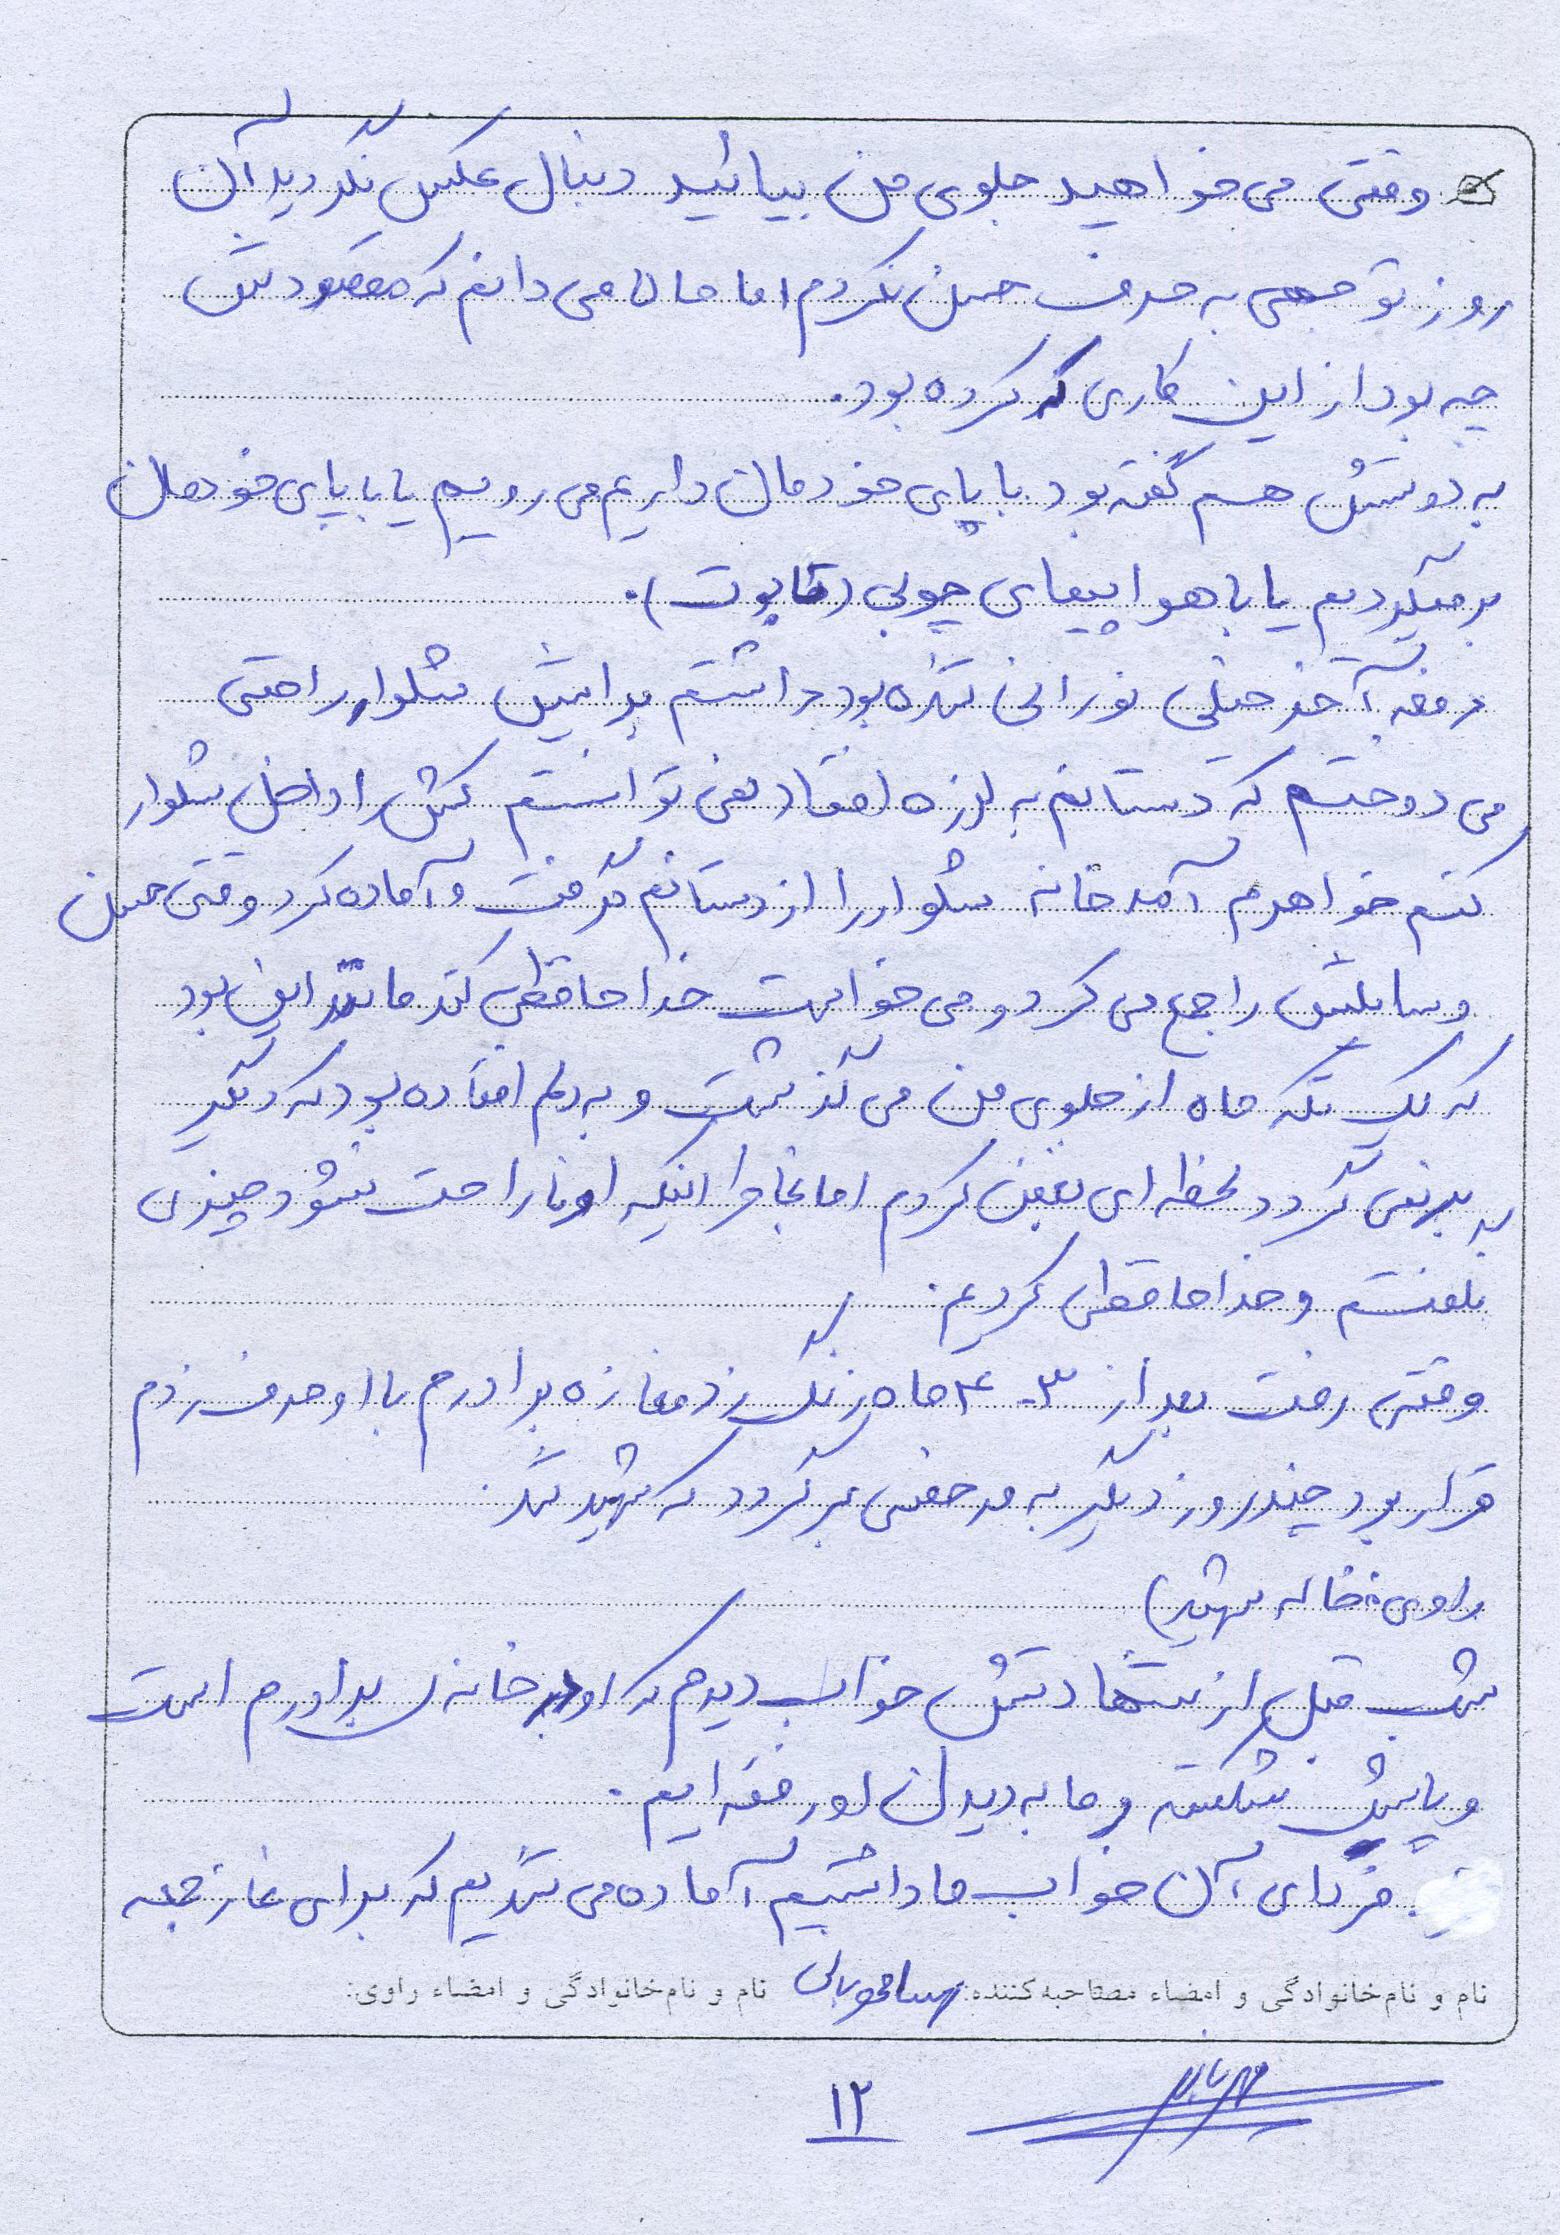 که وقتی می خواهید جلوی من بیائید دنبال عکس نگردید آن
روز توجهی به حرف حسن نکردم اما حالا می دانم که مقصودش
چه بود از این کاری که کرده بود.
به دوستش هم گفته بود با پای خودمان داریم می رویم یا با پای خودمان
برمیگردیم یا با هواپیمای چوبی (تابوت).
دفعه آخر خیلی نورانی شده بود داشتم برایش شلوار راحتی
می دوختم که دستانم به لرزه افتاد نمی توانستم کش را داخل شلوار
کنم خواهرم آمد خانه شلوار را از دستانم گرفت و آماده کرد وقتی حسن
وسایلش را جمع می کرد و می خواست خداحافظی کند مانند این بود
که یک تکه ماه از جلوی من می گذشت و به دلم افتاده بود که دیگر
بر نمی گردد لحظه ای بغض کردم اما بخاطر اینکه او ناراحت نشود چیزی
نگفتم و خداحافظی کردیم.
وقتی رفت بعد از ۳-۴ ماه زنگ زد مغازه برادرم با او حرف زدم
قرار بود چند روز دیگر به مرخصی برگردد که شهید شد.
راوی: خاله شهید)
شب قبل از شهادتش خواب دیدم که او در خانه ی برادرم است
و پایش شکسته و ما به دیدن او رفته ایم.
فردای آن خواب ما داشتیم آماده می شدیم که برای نماز جمعه
نام و نام‌خانوادگی و امضاء مصاحبه‌کننده: نام و نام‌خانوادگی و امضاء راوی:
۱۲